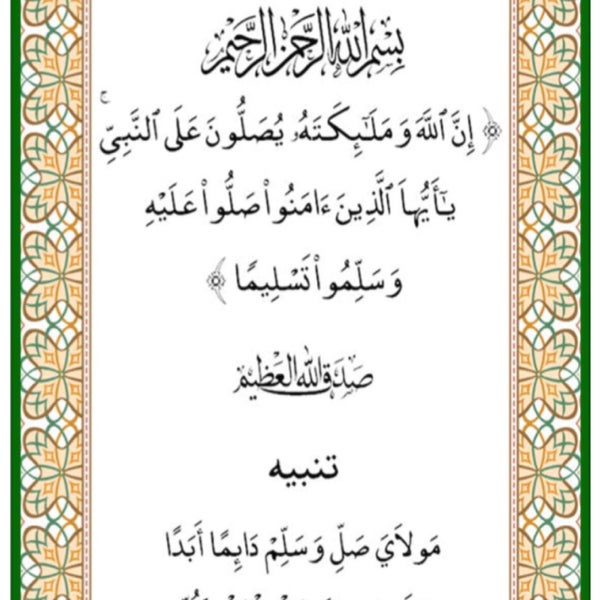 بِسْمِ اللَّهِ الرَّحْمَٰنِ الرَّحِيمِ
﴿ إِنَّ ٱللَّهَ وَمَلَـٰٓئِكَتَهُۥ يُصَلُّونَ عَلَى ٱلنَّبِيِّۚ
يَـٰٓأَيُّهَا ٱلَّذِينَ ءَامَنُوا۟ صَلُّوا۟ عَلَيْهِ
وَسَلِّمُوا۟ تَسْلِيمًا ﴾
صَدَقَ اللَّهُ الْعَظِيمُ
تنبيه
مَولَايَ صَلِّ وَسَلِّمْ دَائِمًا أَبَدًا